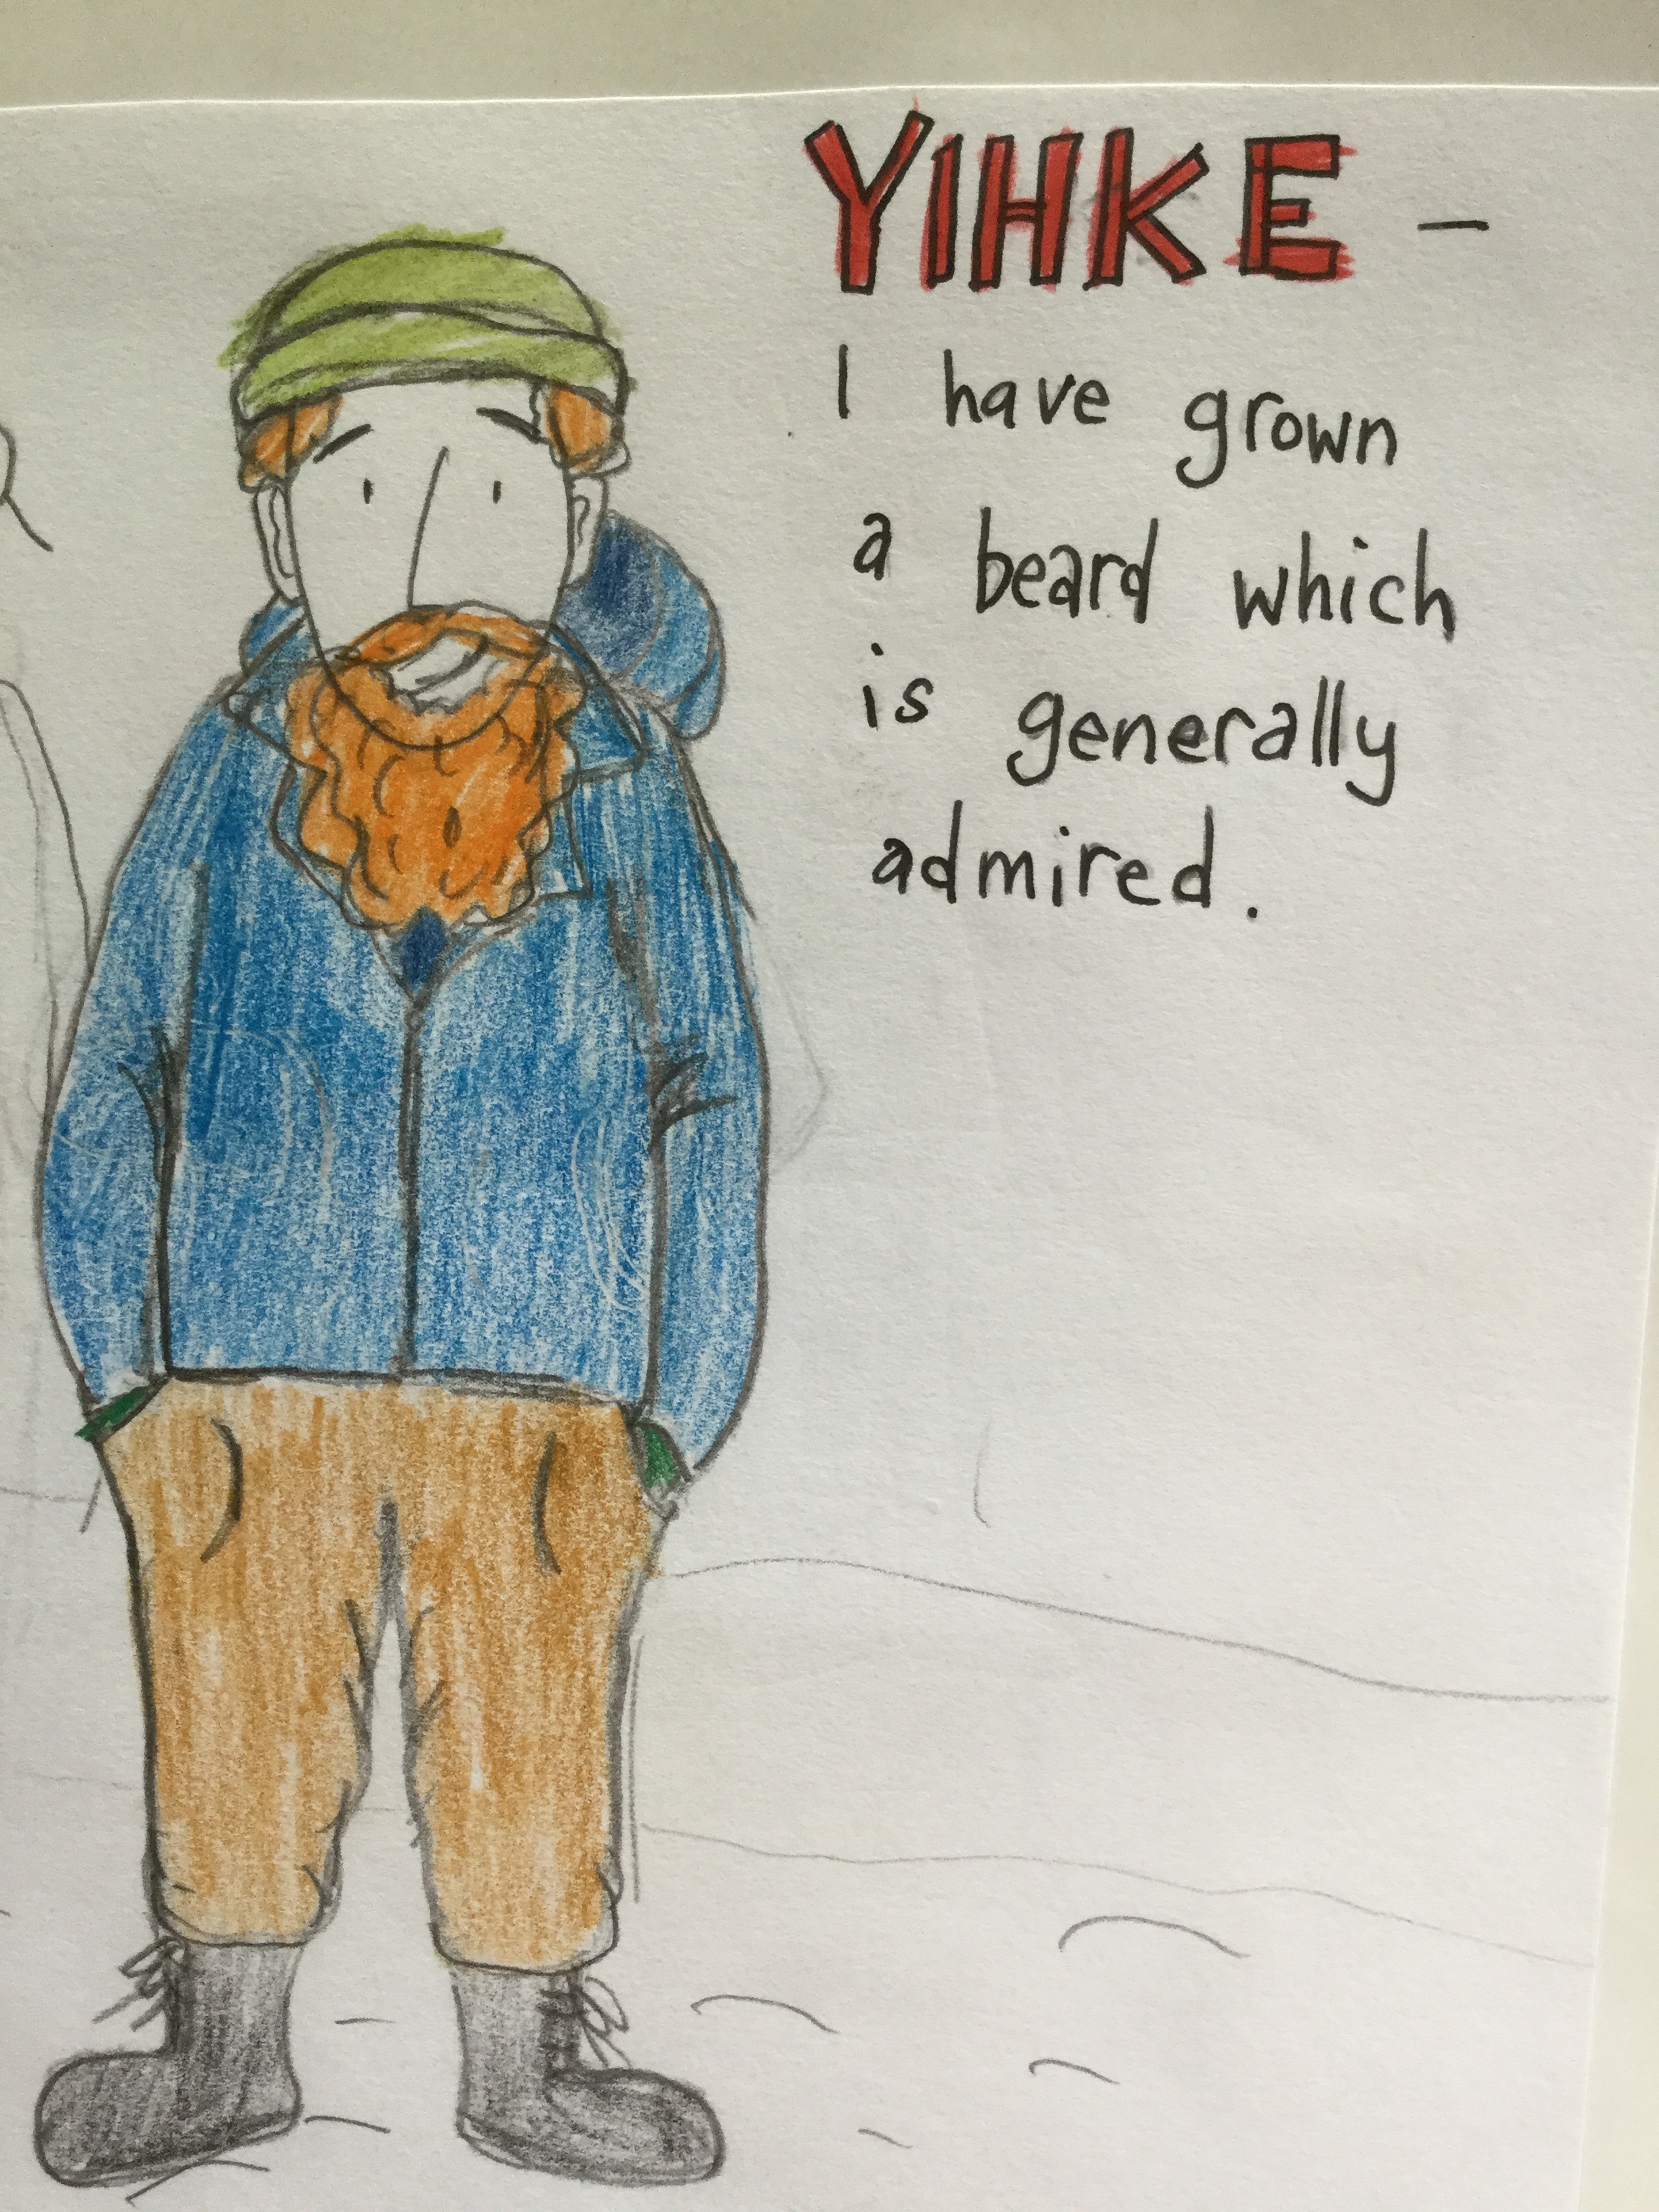 YIHKE –
I have grown
a beard which
is generally
admired.